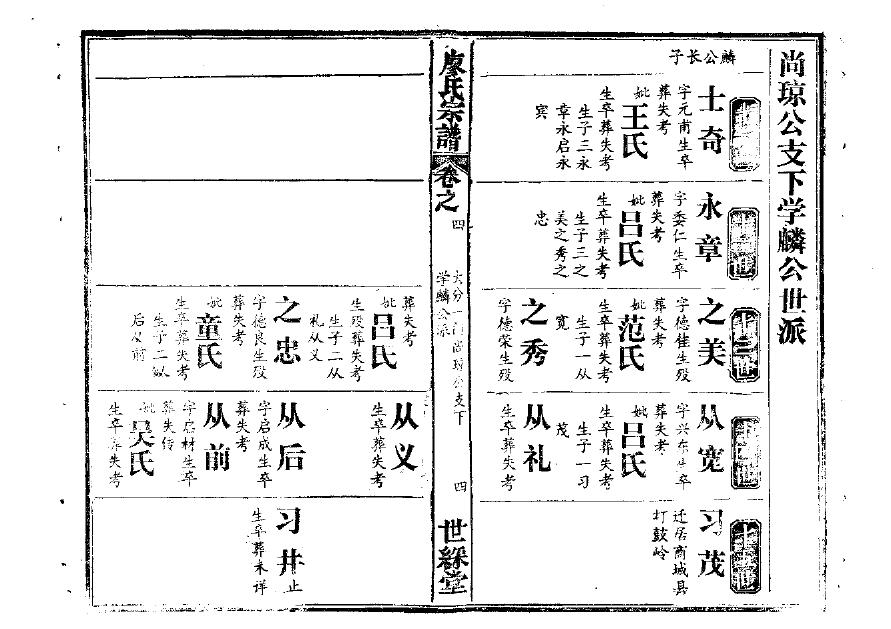 尚琼公支下学麟公世派
麟公长子
士奇
字元甫生卒
葬失考
妣王氏
生卒葬失考
生子三永
章永启永
宾
永章
字委仁生卒
葬失考
妣吕氏
生卒葬失考
生子三之
美之秀之
忠
十三世
之美
字德佳生殁
葬失考
妣范氏
生卒葬失考
生子一从
宽
之秀
字德荣生殁
从宽
字兴东生卒
葬失考
妣吕氏
生卒葬失考
生子一习
茂
从礼
生卒葬失考
习茂
迁居商城县
打鼓岭
廖氏宗谱
卷之
四
大分一门尚琼公支下
学麟公派
四
世綵堂
葬失考
妣吕氏
生殁葬失考
生子二从
礼从义
之忠
字德良生殁
葬失考
妣童氏
生卒葬失考
生子二从
后从前
从义
生卒葬失考
从后
字启成生卒
葬失考
从前
字启材生卒
葬失传
妣吴氏
生卒葬失考
习井止
生卒葬未详